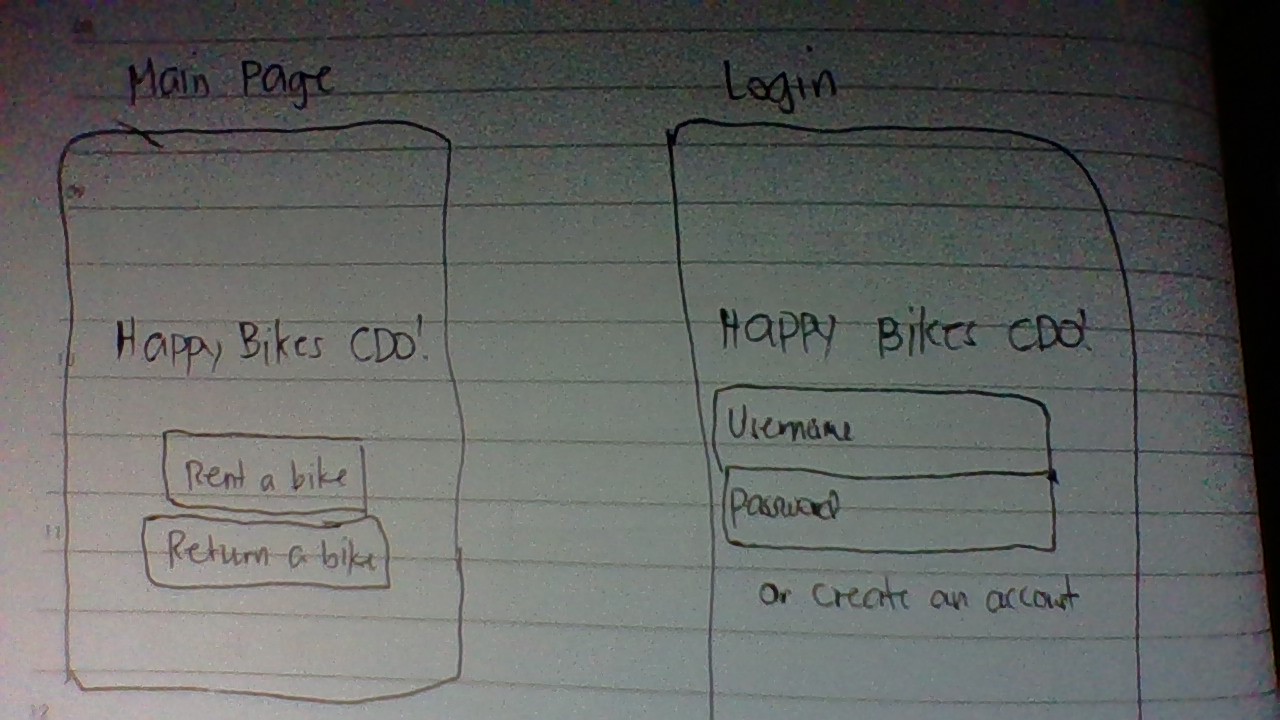 Main Page
Happy Bikes CDO!
Rent a bike
Return a bike
Login
Happy Bikes CDO!
Username
Password
or create an account